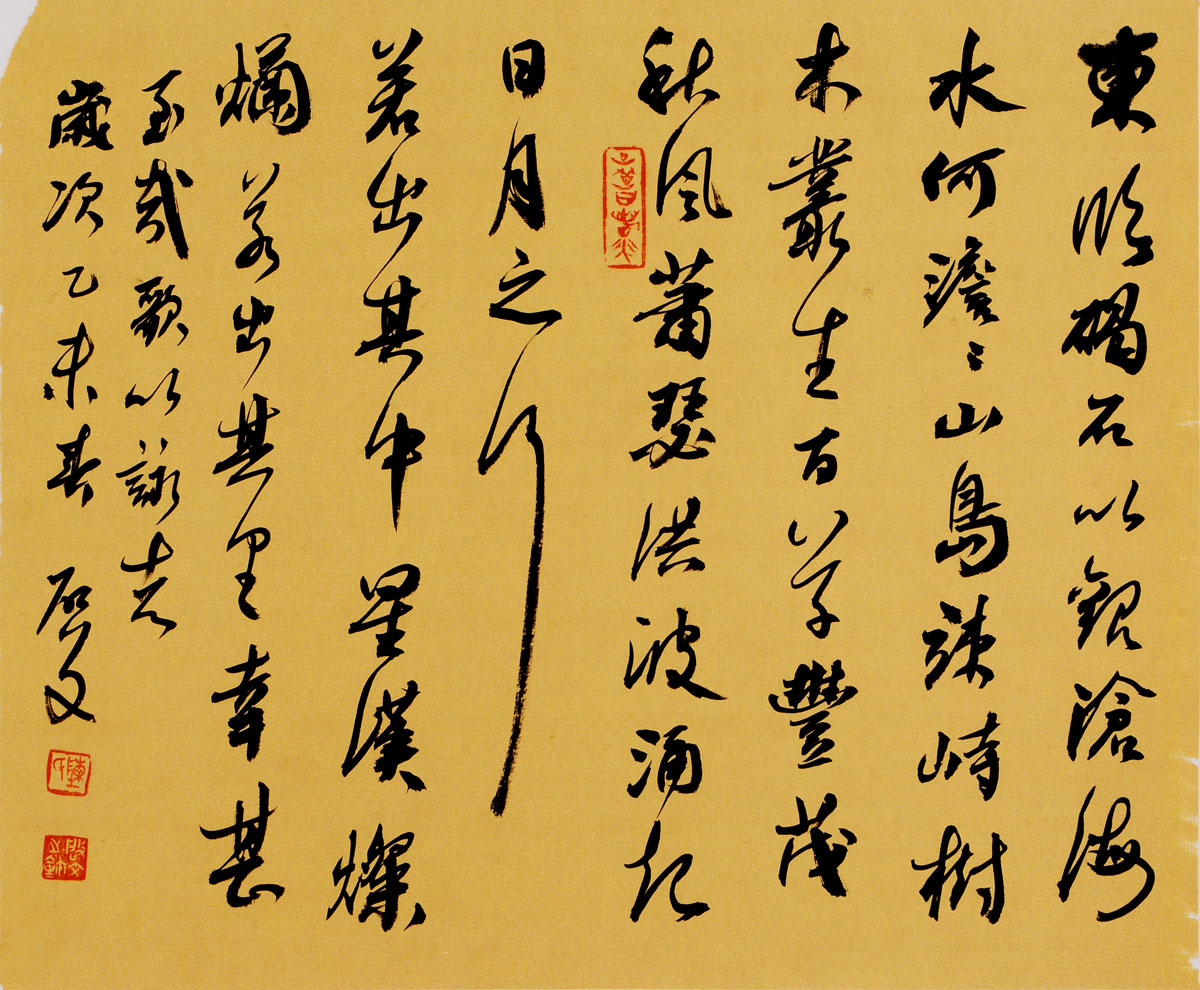 東臨碣石以觀滄海
水何澹〻山島竦峙樹
木叢生百草豐茂
秋風蕭瑟洪波涌起
日月之行
若出其中星漢燦
爛若出其里幸甚
至哉歌以詠志
歲次乙未春 啟文